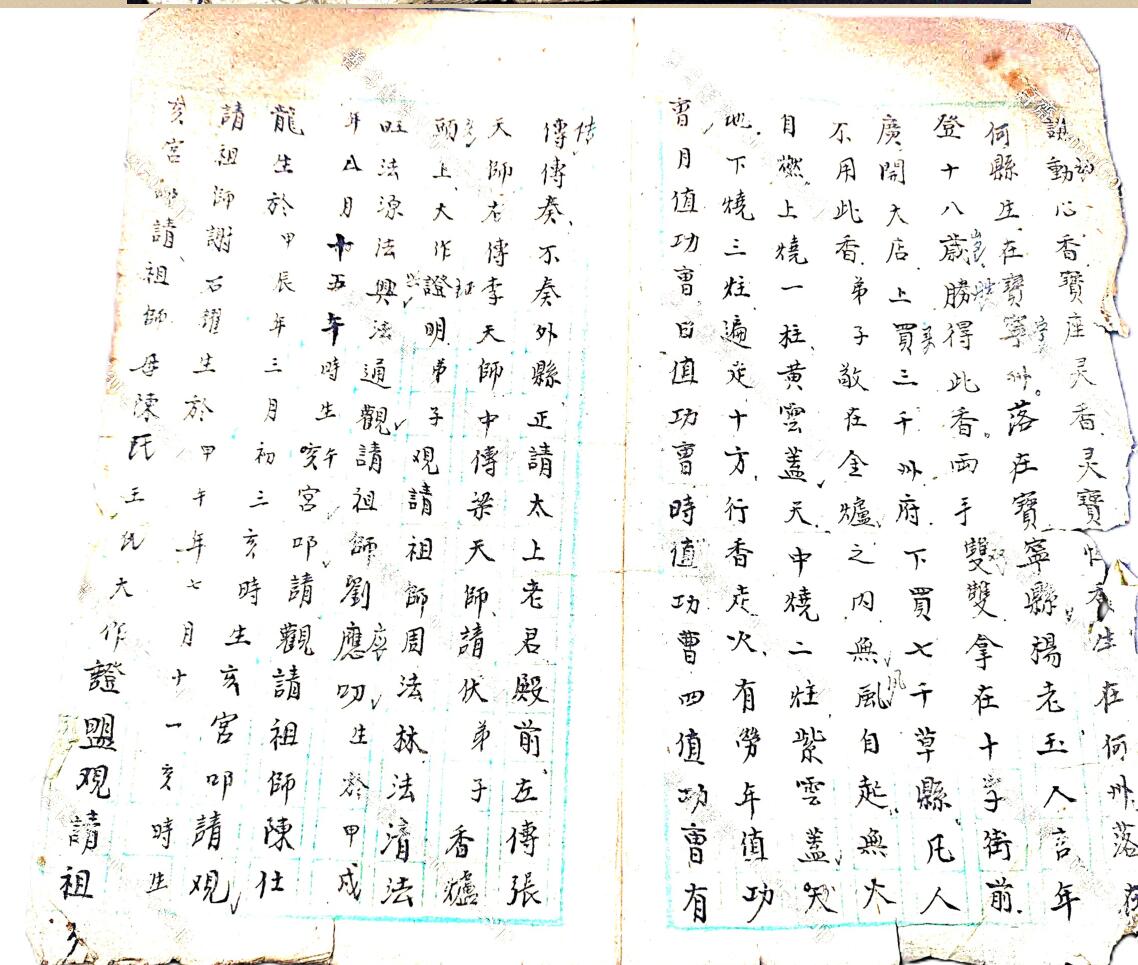 說動心香寶座灵香灵寶香生在何州落在
何縣生在寶寧州落在寶寧縣楊老玉人言年
登十八歲勝得此香両手雙雙拿在十字街前
廣開大店上買三千州府下買七千草縣凡人
不用此香弟子敬在金爐之内無風自起無火
自燃上燒一柱黃雲蓋天中燒二炷紫雲蓋天
地下燒三炷遍走十方行香走火有勞年值功
曹月值功曹日值功曹時值功曹四值功曹有
傳傳奏不奏外縣正請太上老君殿前左傳張
天師右傳李天師中傳梁天師請伏弟子香爐
頭上大作證明弟子观請祖師周法林法清法
旺法源法興法通觀請祖師劉應叨生於甲戍
年八月十五午時生亥宮叩請觀請祖師陳仕
龍生於甲辰年三月初三亥時生亥宮叩請观
請祖師謝石耀生於甲午年七月十一亥時生
亥宮叩請祖師母陳氏王氏大作證盟观請祖